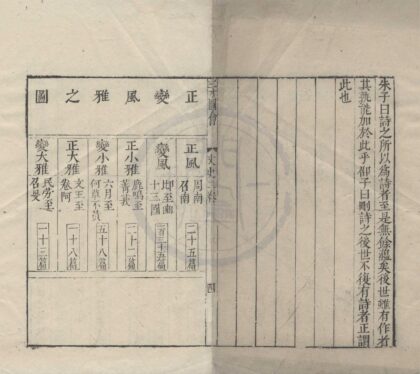 朱子曰詩之所以爲詩者至是無餘蘊矣後世雖有作者
其孰能加於此乎邵子曰刪詩之後世不復有詩者正謂
此也
正變風雅之圖
正風
周南
召南
二十五篇
變風
邶至豳
十三國
一百三十五篇
正小雅
鹿鳴至
菁莪
二十二篇
變小雅
六月至
何草不黃
五十八篇
正大雅
文王至
卷阿
一十八篇
變大雅
民勞至
召旻
一十三篇